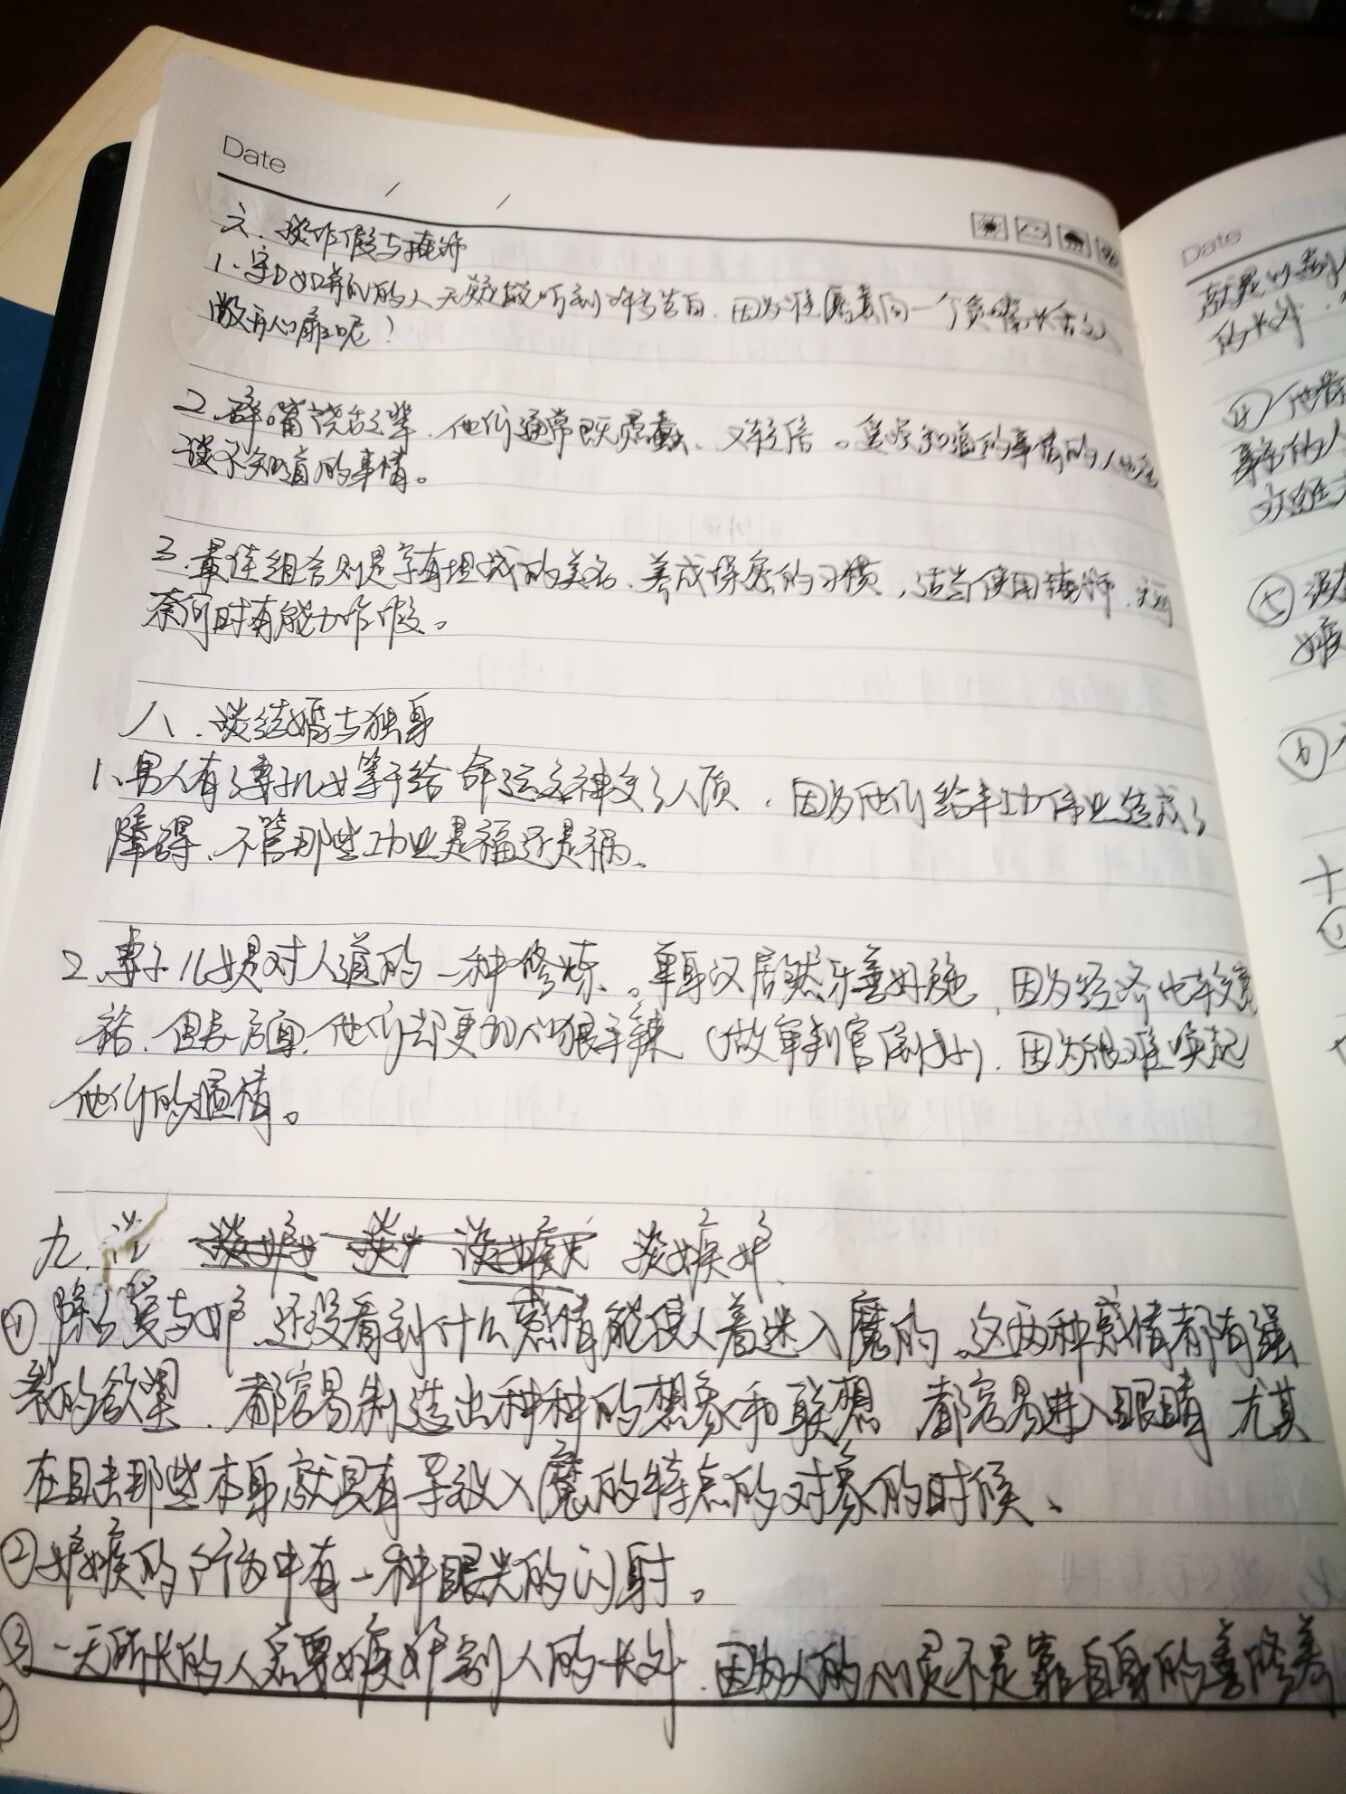 Date
六.谈作假与掩饰
1.守口如瓶的人无疑能听到许多告白.因为谁愿意向一个
敞开心扉呢?
2.碎嘴饶舌之辈.他们通常既虚荣、又轻信。
谈不知道的事情。
3.最佳组合则是享有坦诚的美名.养成保密的习惯,适当使用掩饰.无可
奈何时有能力作假。
八.谈结婚与独身
1.男人有了妻子儿女等于给命运之神交了人质.因为他们给丰功伟业造成了
障碍.不管那些功业是福还是祸.
2.妻子儿女是对人道的一种修炼.。单身汉居然乐善好施.因为经济也较宽
裕.但另一方面.他们却更加心狠手辣(做审判官倒好).因为很难唤起
他们的温情。
九. 谈嫉妒
① 除了爱与妒.还没看到什么感情能使人着迷入魔的.这两种感情都有强
烈的欲望.都容易制造出种种的想象和联想 都容易进入眼睛 尤其
在目击那些本身就具有导致入魔的特点的对象的时候.
②嫉妒的行为中有一种眼光的闪射。
③一无所长的人总要嫉妒别人的长处.因为人的心灵不是靠自身的善修养
Date
的长处.
④他
⑤
⑥
十